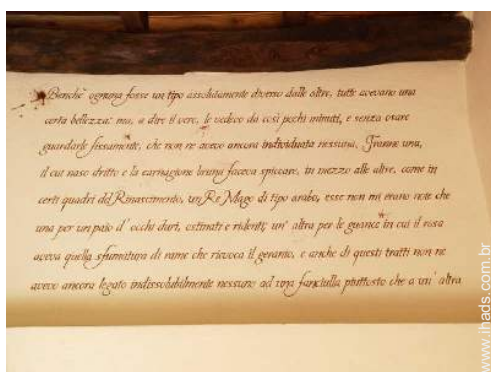 Benchè ognuna fosse un tipo assolutamente diverso dalle altre, tutte avevano una
certa bellezza: ma, a dire il vero, le vedevo da così pochi minuti, e senza osare
guardarle fissamente, che non ne avevo ancora individuata nessuna. Tranne una,
il cui naso dritto e la carnagione bruna faceva spiccare, in mezzo alle altre, come in
certi quadri del Rinascimento, un Re Mago di tipo arabo, esse non mi erano note che
una per un paio d' occhi duri, ostinati e ridenti; un' altra per le guance in cui il rosa
aveva quella sfumatura di rame che rievoca il geranio, e anche di questi tratti non ne
avevo ancora legato indissolubilmente nessuno ad una fanciulla piuttosto che a un' altra
www.ihads.com.br